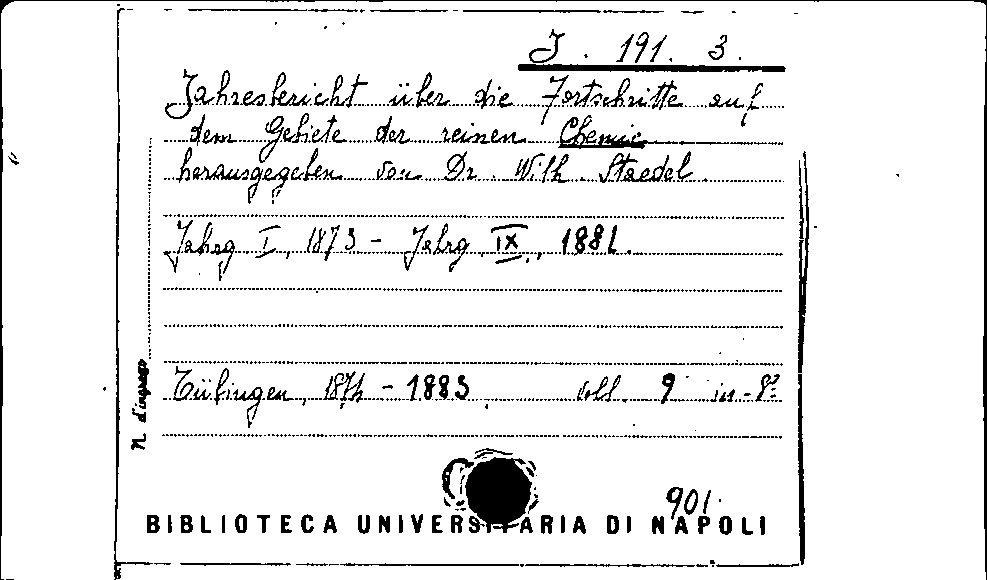 J. 191. 3.
Jahresbericht über die Fortschritte auf
dem Gebiete der reinen Chemie
herausgegeben von Dr. Wilh. Staedel.
Jahrg I, 1873 - Jahrg. IX., 1881.
Tübingen, 1874 - 1883. voll. 9 in-8º
N. d'ingresso
901.
BIBLIOTECA UNIVERSITARIA DI NAPOLI